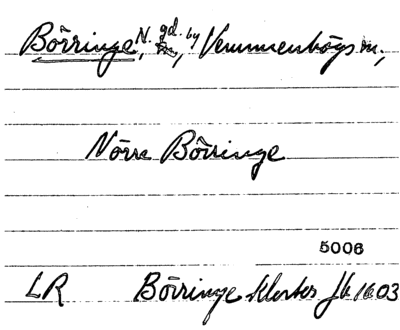 Börringe, N. gd. by, Vemmenhögs m.,
Norra Börringe
5006
LR Börringe kloster Jb 1603